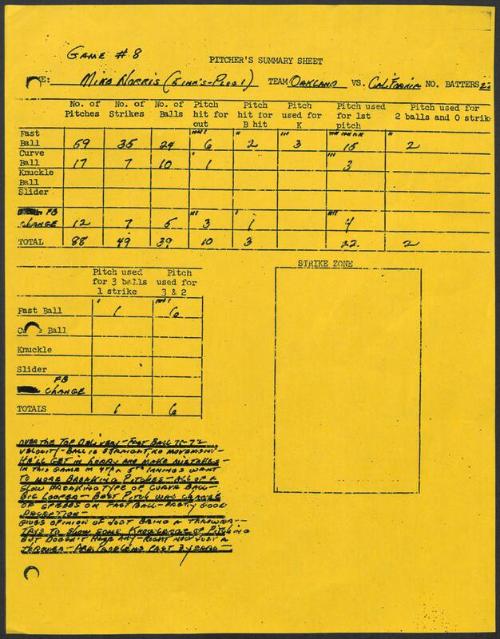 GAME #8
PITCHER'S SUMMARY SHEET
E: Mike Norris TEAM Oakland VS. California NO. BATTERS 22
No. of Pitches No. of Strikes No. of Balls Pitch hit for out Pitch hit for B hit Pitch used for K Pitch used for 1st pitch Pitch used for 2 balls and 0 strik
Fast Ball 59 35 24 6 2 3 15 2
Curve Ball 17 7 10 1 3
Knuckle Ball
Slider
FB CHANGE 12 7 5 3 1 4
TOTAL 88 49 39 10 3 22 2
STRIKE ZONE
Pitch used for 3 balls 1 strike Pitch used for 3 & 2
Fast Ball 1 6
Ball
Knuckle
Slider
FB CHANGE
TOTALS 1 6
OVER THE TOP DELIVERY - FAST BALL 70-72
VELOCITY - BALL IS STRAIGHT, NO MOVEMENT -
HE'LL GET IN AND MAKE MISTAKES -
IN THIS GAME IN 4TH & 5TH INNINGS WENT
TO MORE BREAKING PITCHES - ALL OF A
SLOW BREAKING TYPE OF CURVE BALL -
BIG LOOPER - BEST PITCH WAS CHANGE
OF SPEEDS ON FAST BALL - PRETTY GOOD
DECEPTION -
GIVES OPINION OF JUST BEING A THROWER -
TRYS TO SHOW SOME KNOWLEDGE OF PITCHING
BUT DOESN'T HAVE ANY - RIGHT NOW JUST A
THROWER - ARM PROBLEMS PAST